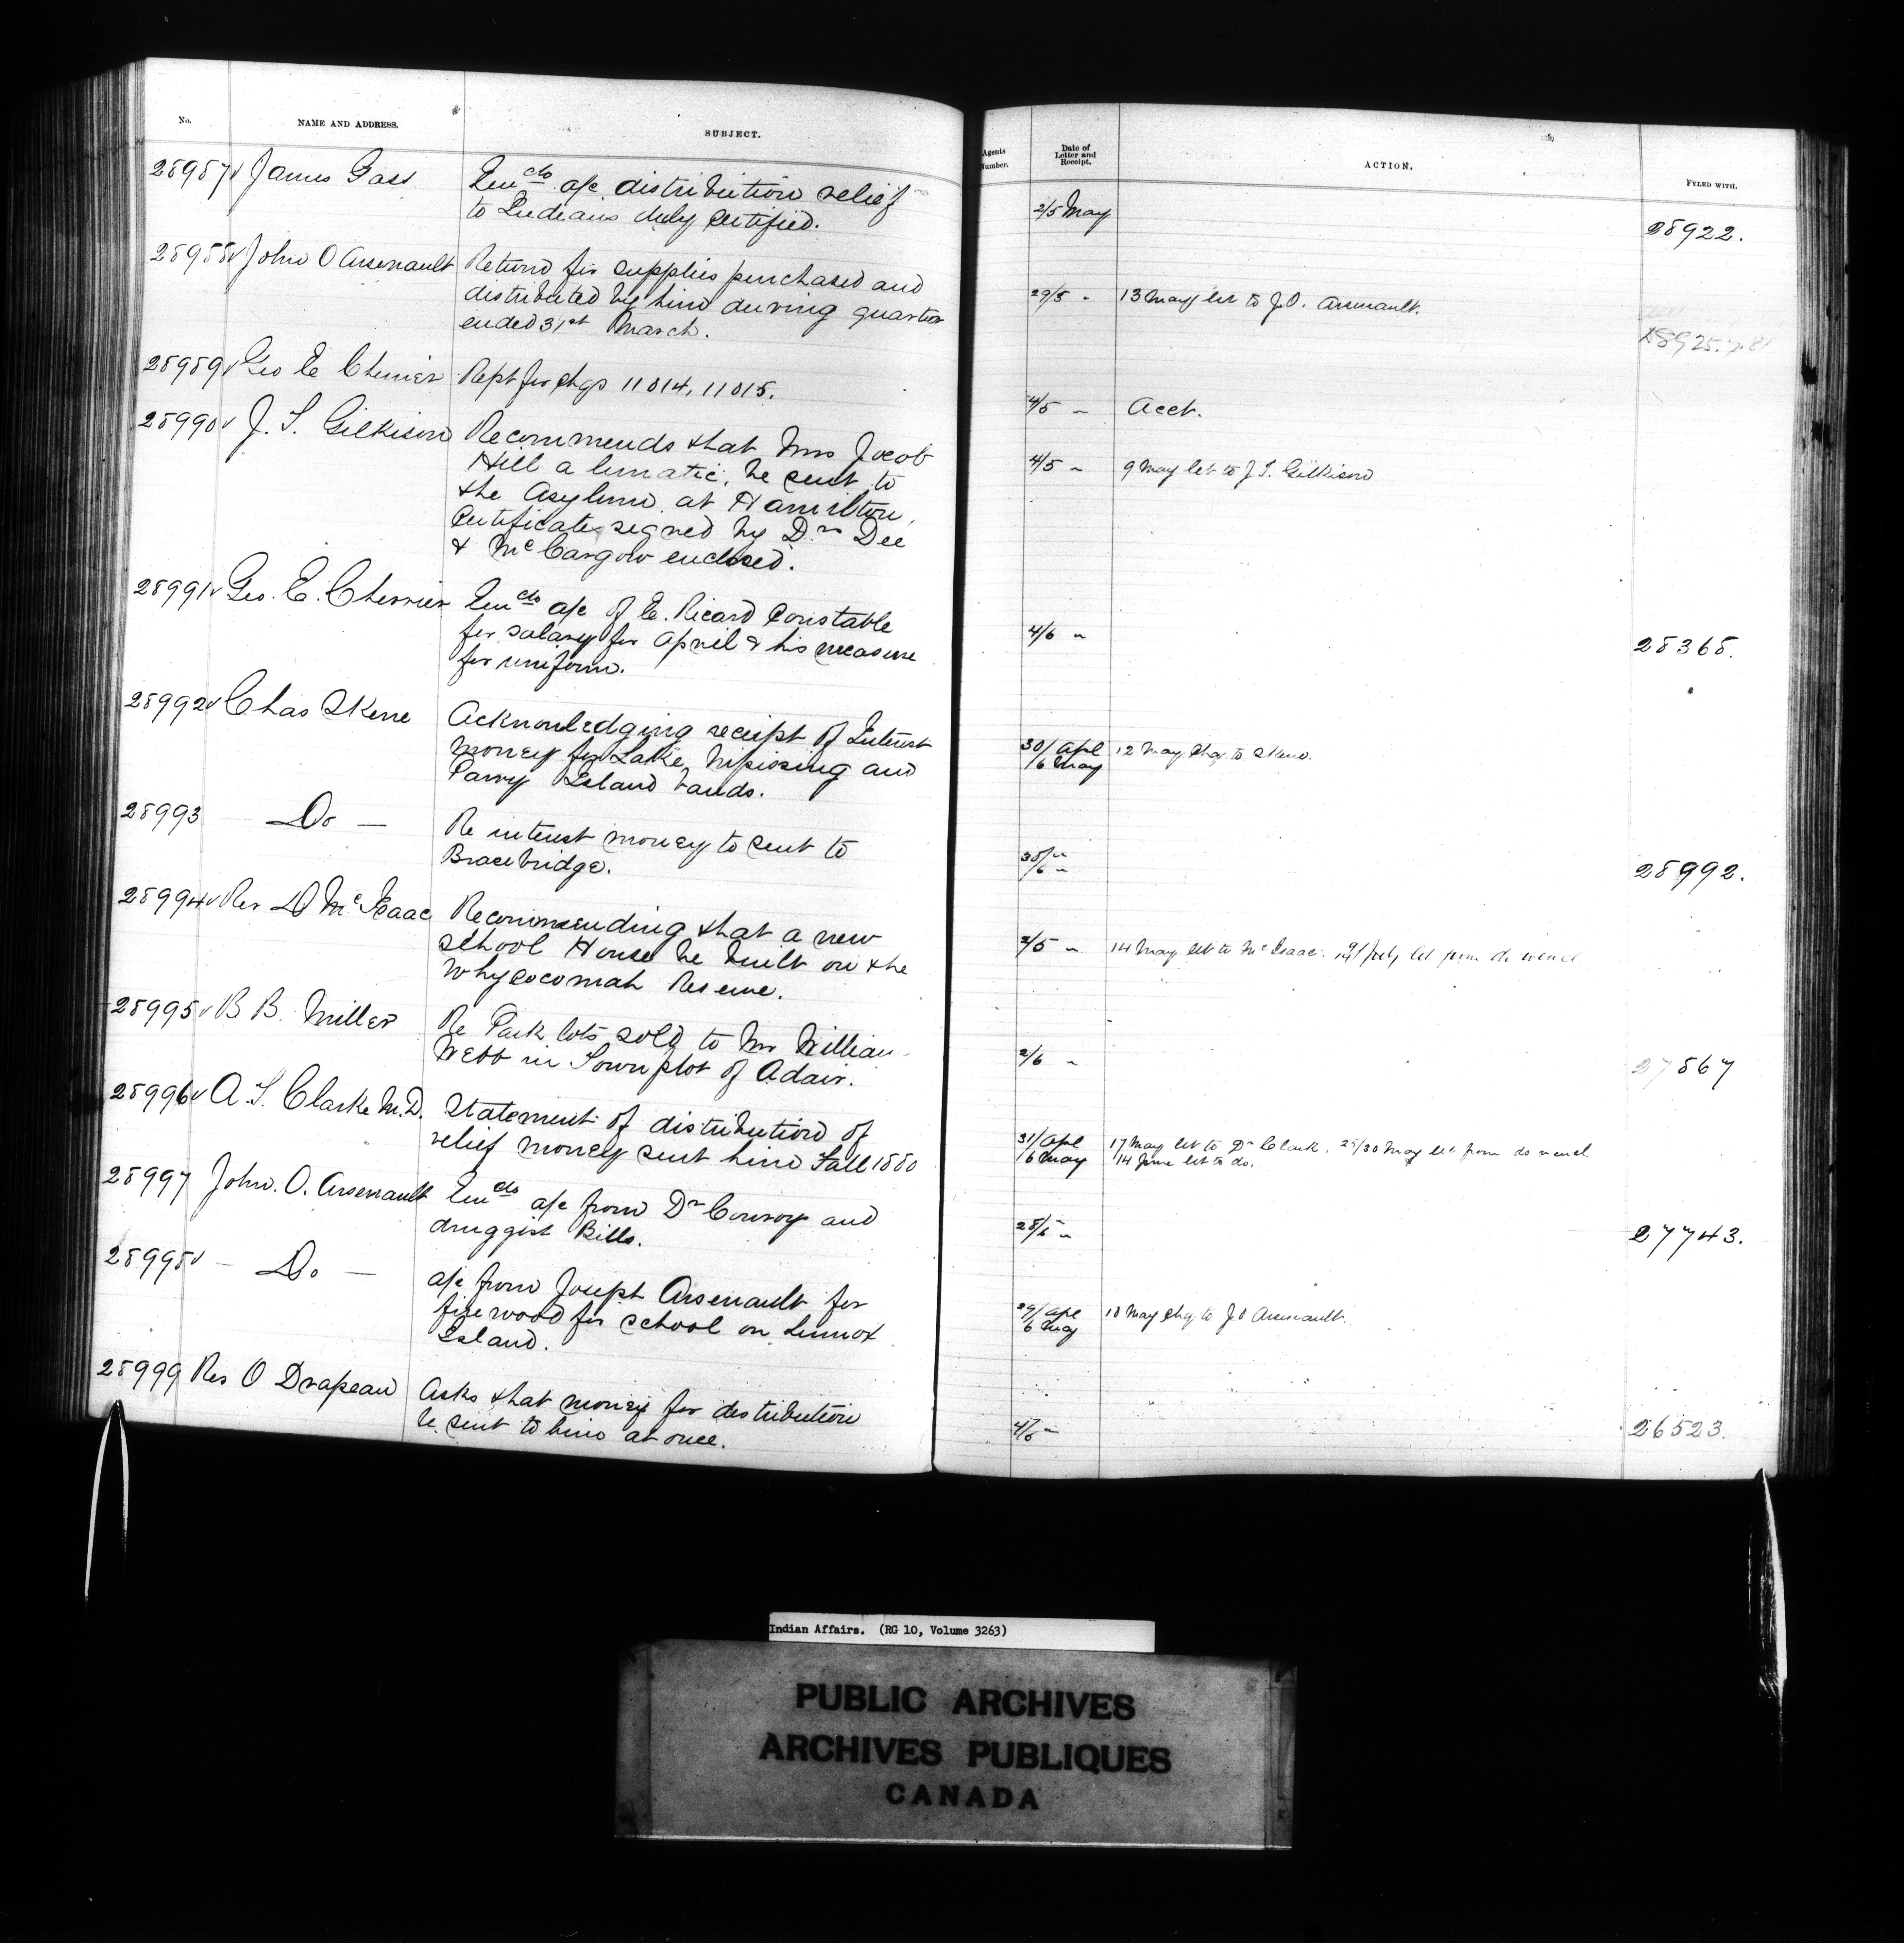 No. NAME AND ADDRESS. SUBJECT. Agents Number. Date of Letter and Receipt. ACTION. FYLED WITH.
28987 James Gass Encds a/c distribution relief
to Indians duly certified. 2/5 May 28922.
28988 John O Arsenault Return for supplies purchased and
distributed by him during quarter
ended 31st March. 29/5 " 13 May let to J.O. Arsenault. 28925.
28989 Geo E Cherrier Rept for chqs 11014, 11015. 4/5 " Acct.
28990 J. T. Gilkison Recommends that Mrs Jacob
Hill a lunatic, be sent to
the Asylum at Hamilton,
Certificates signed by Drs Dee
& McCargow enclosed. 4/5 " 9 May let to J T. Gilkison
28991 Geo. E. Cherrier Encds a/c of E. Ricard Constable
for salary for April & his measure
for uniform. 4/6 " 28368.
28992 Chas Skene Acknowledging receipt of Interest
money for Lake Nipissing and
Parry Island bands. 30/Apl 6 May 12 May Chq to Skene.
28993 — Do — Re interest money to sent to
Bracebridge. 30/" 6 " 28992.
28994 Rev D McIsaac Recommending that a new
School House be built on the
Whycocomah Reserve. 2/5 " 14 May let to McIsaac. July let from do
28995 B B. Miller Re Park lots sold to Mr William
Webb in Town plot of Adair. 2/6 " 27867
28996 A. T. Clarke M.D. Statement of distribution of
relief money sent him Fall 1880 31/Apl 6 May 17 May let to Dr Clark. 25/30 May let from do
14 June let to do.
28997 John. O. Arsenault Encds a/c from Dr Conroy and
druggist Bills. 28/6 " 27743.
28998 — Do — a/c from Joseph Arsenault for
fire wood for school on Lennox
Island. 29/Apl 6 May 18 May Chq to J O Arsenault.
28999 Rev O Drapeau Asks that money for distribution
be sent to him at once. 4/6 " 26523.
Indian Affairs. (RG 10, Volume 3263)
PUBLIC ARCHIVES
ARCHIVES PUBLIQUES
CANADA